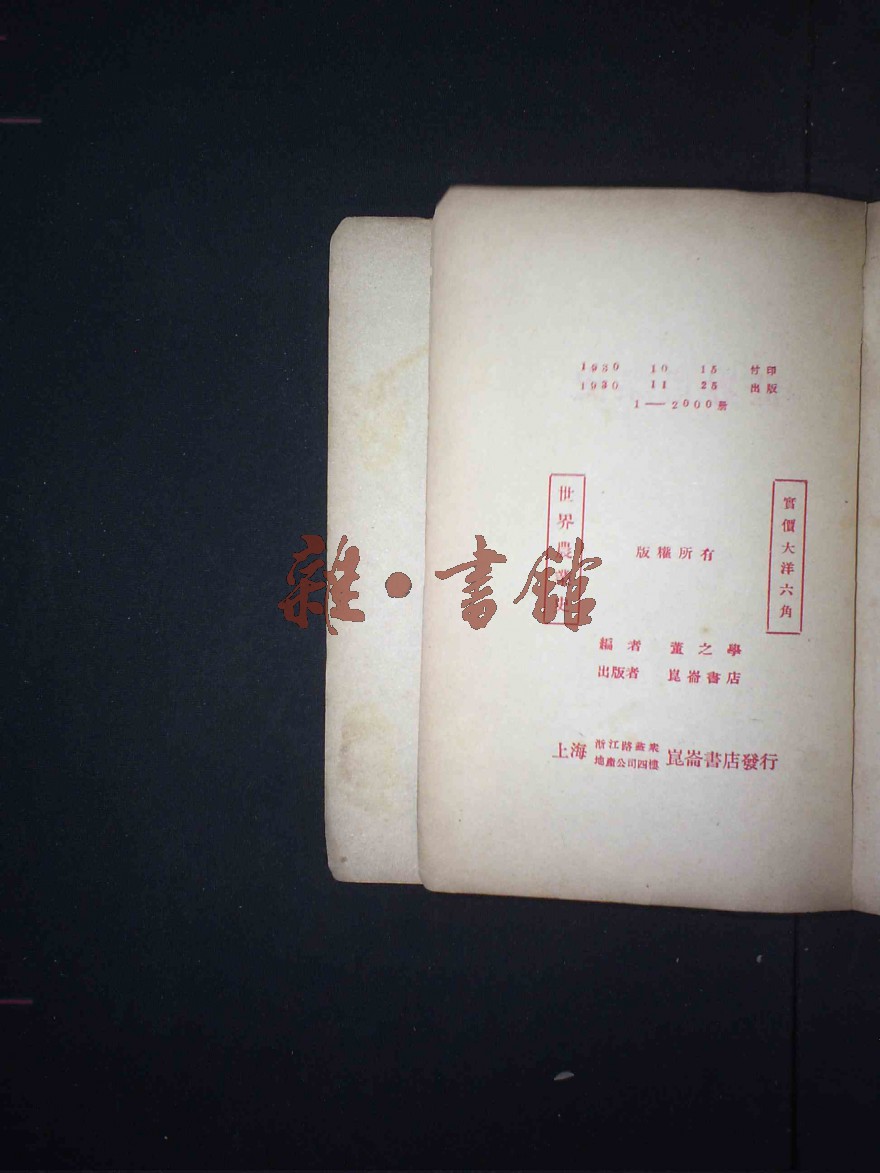 1930 10 15 付印
1930 11 25 出版
1—2000册
世界農業史
版權所有
實價大洋六角
編者 董之學
出版者 崑崙書店
上海 浙江路益衆
地產公司四樓 崑崙書店發行
雜·書館